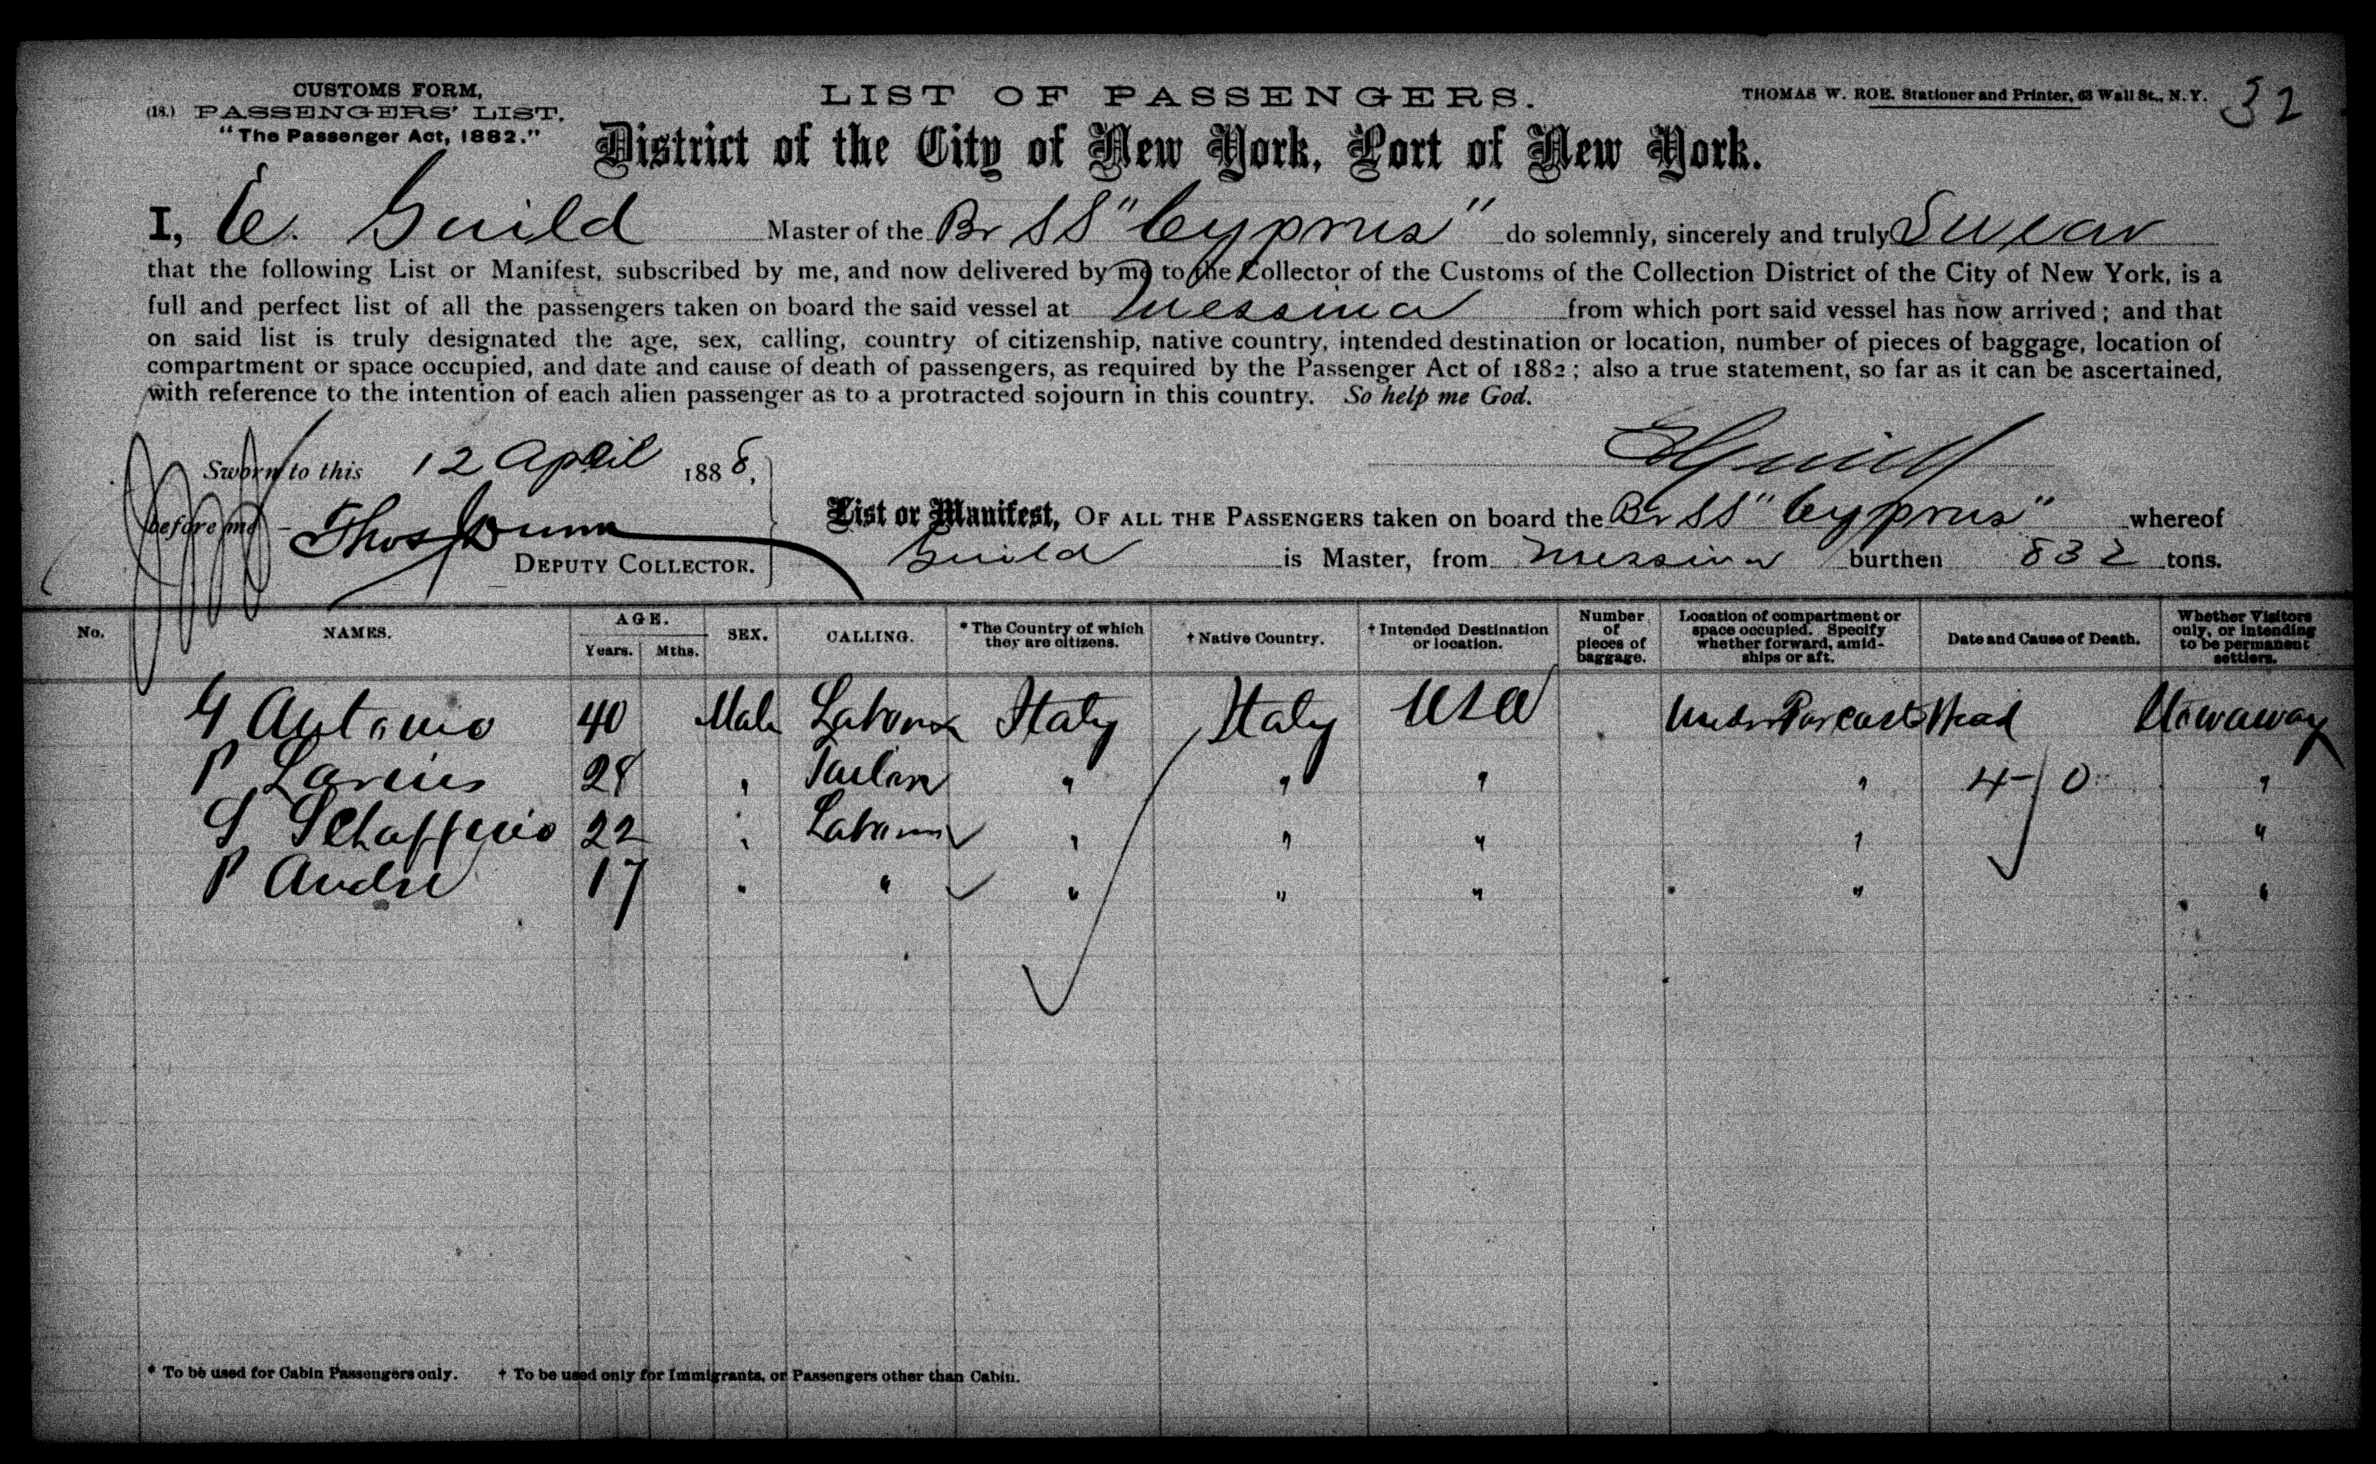 CUSTOMS FORM,
(18.) PASSENGERS' LIST.
"The Passenger Act, 1882."
LIST OF PASSENGERS.
THOMAS W. ROE. Stationer and Printer, 63 Wall St., N.Y.
32
District of the City of New York, Port of New York.
I, E. Guild Master of the Br SS "Cyprus" do solemnly, sincerely and truly Swear
that the following List or Manifest, subscribed by me, and now delivered by me to the Collector of the Customs of the Collection District of the City of New York, is a
full and perfect list of all the passengers taken on board the said vessel at Messina from which port said vessel has now arrived; and that
on said list is truly designated the age, sex, calling, country of citizenship, native country, intended destination or location, number of pieces of baggage, location of
compartment or space occupied, and date and cause of death of passengers, as required by the Passenger Act of 1882; also a true statement, so far as it can be ascertained,
with reference to the intention of each alien passenger as to a protracted sojourn in this country. So help me God.
Sworn to this 12 April 1888,
E Guild
before me Thos Dunn
DEPUTY COLLECTOR.
List or Manifest, OF ALL THE PASSENGERS taken on board the Br SS "Cyprus" whereof
Guild is Master, from Messina burthen 832 tons.
No. NAMES. AGE. Years. Mths. SEX. CALLING. * The Country of which they are citizens. † Native Country. † Intended Destination or location. Number of pieces of baggage. Location of compartment or space occupied. Specify whether forward, amid-ships or aft. Date and Cause of Death. Whether Visitors only, or intending to be permanent settlers.
G Antonio 40 Male Labourer Italy Italy USA Under Forecastle Head Stowaway
P 28 " " " " " 4-/0 "
S 22 " Labourer " " " " "
P Andre 17 " " " " " " "
* To be used for Cabin Passengers only. † To be used only for Immigrants, or Passengers other than Cabin.